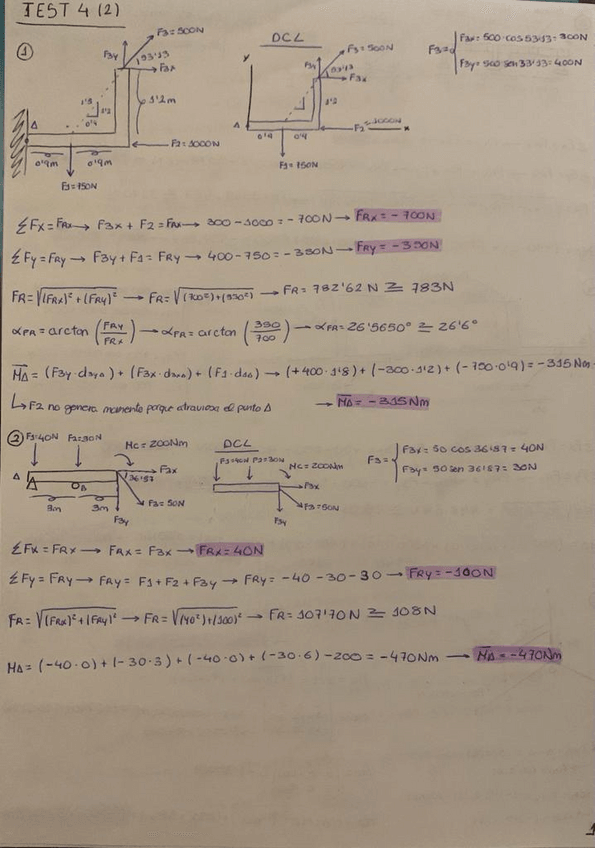 TEST 4 (2)
①
F3=500N
F3y
53'13
F3x
1'2m
Δ
0'9m 0'9m
F2=1000N
F1=750N
DCL
y
F3=500N
F3y
53'13
F3x
1'2
Δ
0'9 0'9
F2=1000N
x
F1=750N
F3x=500·cos 53'13=300N
F3y=500 sen 53'13=400N
ΣFx=FRx → F3x+F2=FRx → 300-1000=-700N → FRx=-700N
ΣFy=FRy → F3y+F1=FRy → 400-750=-350N → FRy=-350N
FR=√(FRx)²+(FRy)² → FR=√(700²)+(350²) → FR=782'62N ≅ 783N
αFR=arctan (FRy/FRx) → αFR=arctan (350/700) → αFR=26'5650° ≅ 26'6°
MΔ=(F3y·d3yΔ)+(F3x·d3xΔ)+(F1·d1Δ) → (+400·1'8)+(-300·1'2)+(-750·0'9)=-315Nm
↳ F2 no genera momento porque atraviesa el punto Δ → MΔ=-315Nm
②
F1=40N F2=30N
MC=200Nm
Δ
F3x
36'87
B
3m 3m
F3=50N
F3y
DCL
F1=40N F2=30N
MC=200Nm
F3x
F3=50N
F3y
F3=
F3x=50 cos 36'87=40N
F3y=50 sen 36'87=30N
ΣFx=FRx → FRx=F3x → FRx=40N
ΣFy=FRy → FRy=F1+F2+F3y → FRy=-40-30-30 → FRy=-100N
FR=√(FRx)²+(FRy)² → FR=√(40²)+(100)² → FR=107'70N ≅ 108N
MΔ=(-40·0)+(-30·3)+(-40·0)+(-30·6)-200=-470Nm → MΔ=-470Nm
1